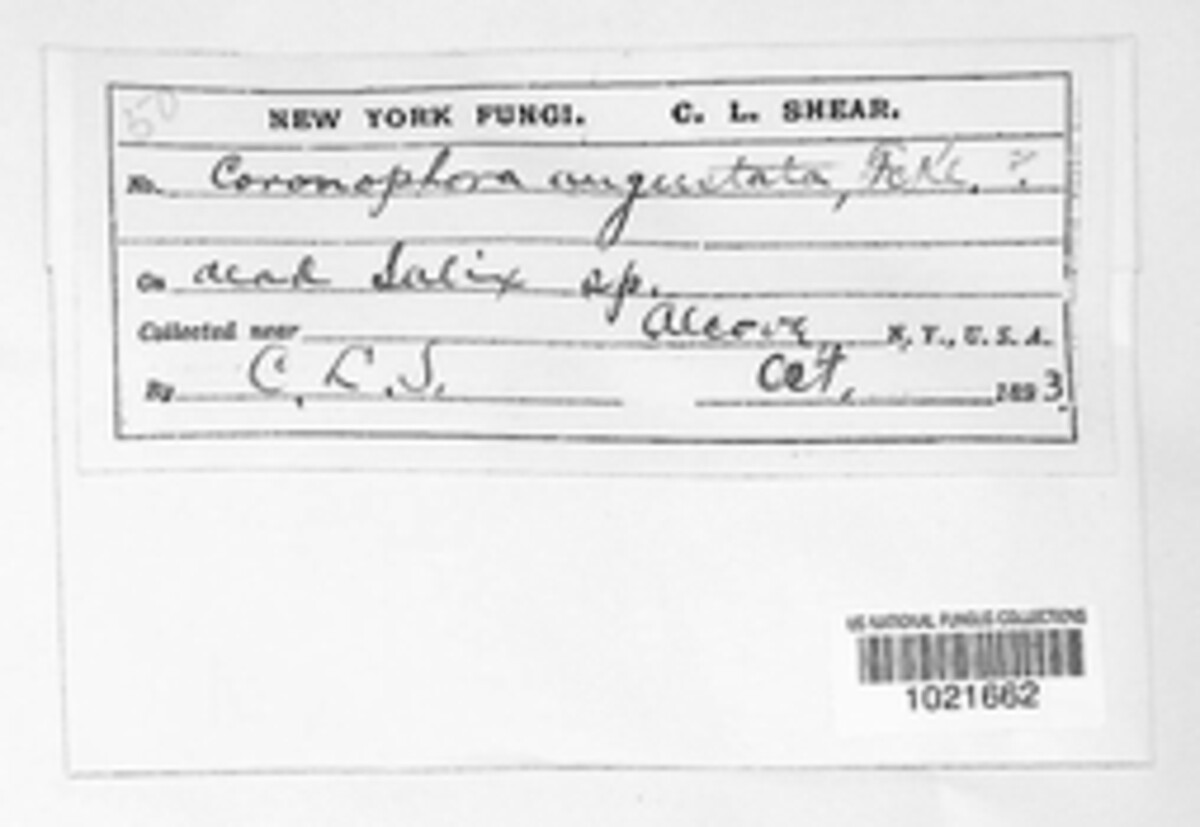 50
NEW YORK FUNGI. C. L. SHEAR.
No. Coronophora angustata, Fckl. ?
On dead Salix sp.
Collected near Alcove N. Y., U. S. A.
By C. L. S. Oct. 1893.
US NATIONAL FUNGUS COLLECTIONS
1021662